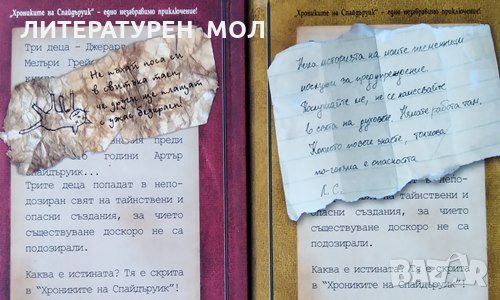 „Хрониките на Спайдъруик" – едно незабравимо приключение!
ЛИТЕРАТУРЕН МОЛ
Три деца - Джерард
Мелъри Грейс
Не пъхай носа си
в свитъка таен,
че други ще плащат
с ужас безкраен!
преди
години Артър
Спайдъруик...
Трите деца попадат в непо-
дозиран свят на тайнствени и
опасни създания, за чието
съществуване доскоро не са
подозирали.
Каква е истината? Тя е скрита
в "Хрониките на Спайдъруик"!
„Хрониките на Спайдъруик" – едно незабравимо приключение!
Нека историята на моите племенници
послужи за предупреждение.
Послушайте ме, не се намесвайте
в света на духовете. Нямате работа там.
Колкото повече знаете, толкова
по-голяма е опасността.
Л. С.
деца попадат в непо-
свят на тайнствени и
опасни създания, за чието
съществуване доскоро не са
подозирали.
Каква е истината? Тя е скрита
в "Хрониките на Спайдъруик"!
BAZAR